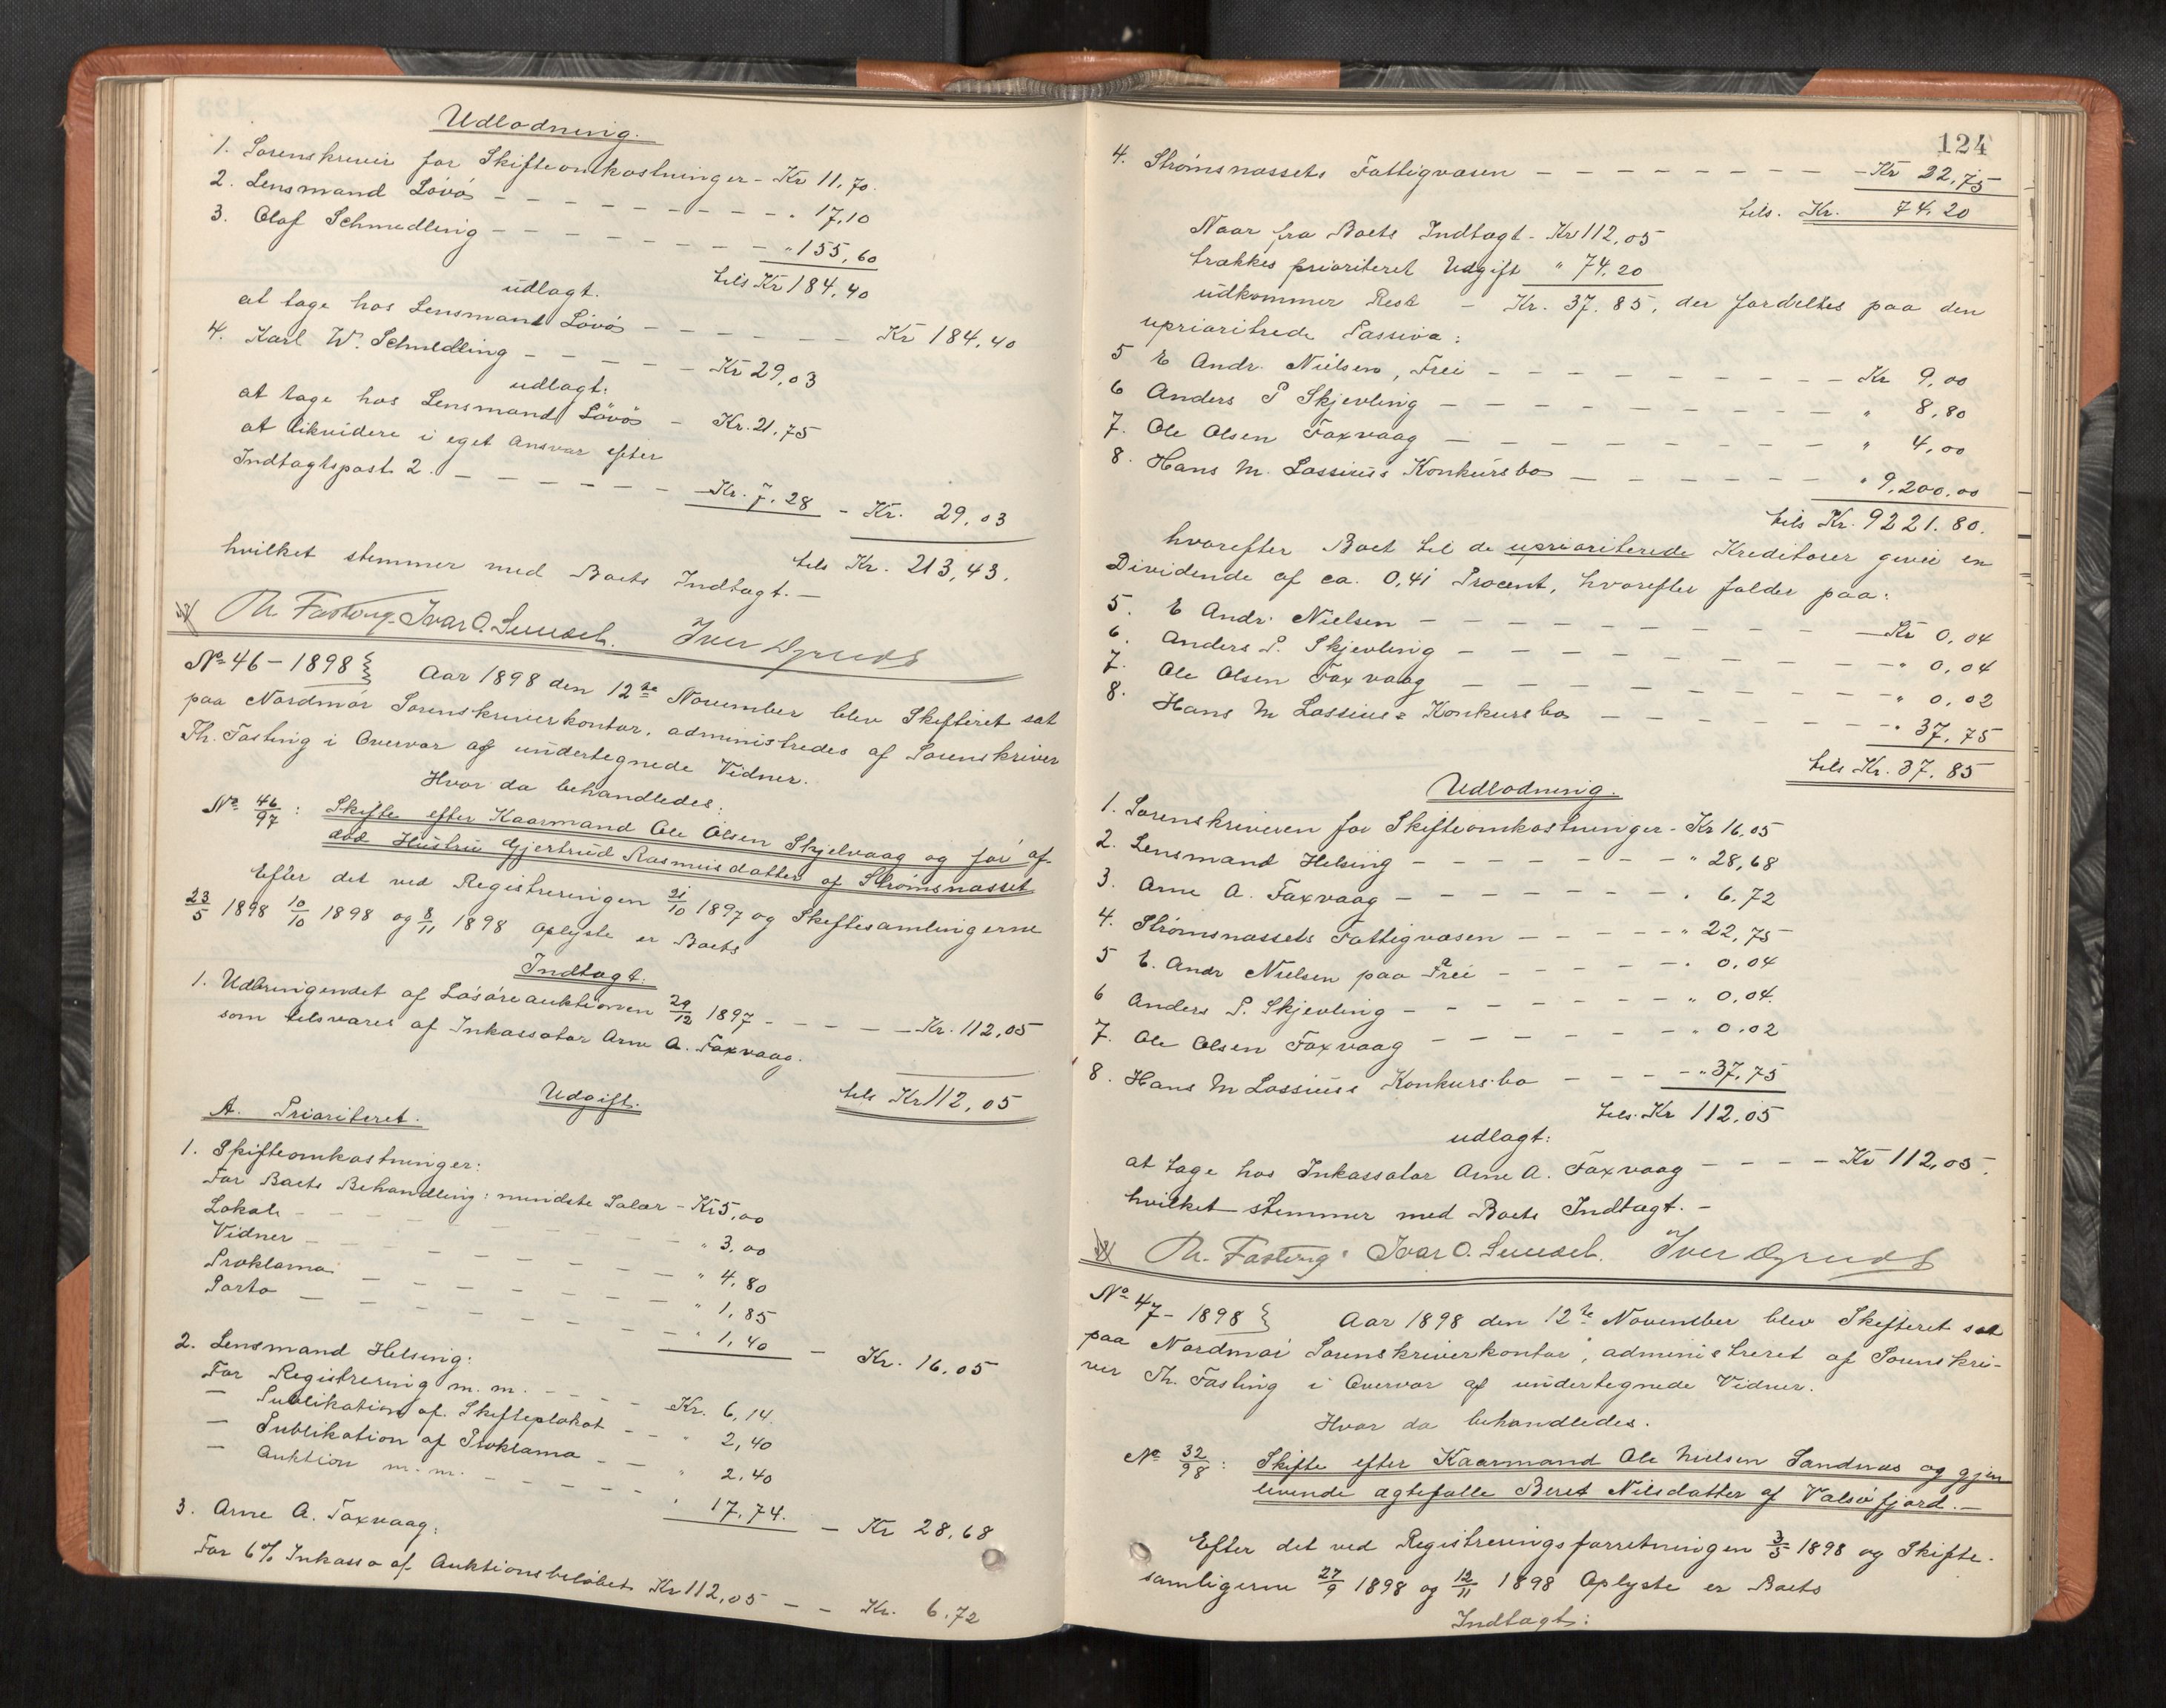 Udlodning.
1. Sorenskriver for Skifteomkostninger - Kr 11,70.
2. Lensmand Løvø - - - - - - - - - " 17,10
3. Olaf Schmedling - - - - - - - - - " 155,60
tils Kr 184,40
udlagt.
at tage hos Lensmand Løvø - - - - - - Kr 184,40
4. Karl W. Schmedling - - - - - Kr 29,03
udlagt:
at tage hos Lensmand Løvø - Kr. 21,75
at likvidere i eget Ansvar efter
Indtægtspost 2. - - - - - - - Kr. 7,28 - Kr. 29,03
tils Kr. 213,43.
hvilket stemmer med Boets Indtægt. -
Th. Fasting. Ivar O.
Nº 46 - 1898 } Aar 1898 den 12te November blev Skifteret sat
paa Nordmør Sorenskriverkontor, administredes af Sorenskriver
Th. Fasting i Overvær af undertegnede Vidner.
Hvor da behandledes:
Nº 46/97 : Skifte efter Kaarmand Ole Olsen Skjelvaag og før af-
død Hustru Gjertrud Rasmusdatter af Strømsnæsset
Efter det ved Registreringen 21/10 1897 og Skiftesamlingerne
23/5 1898 10/10 1898 og 8/11 1898 oplyste er Boets
Indtægt.
1. Udbringendet af Løsøreauktionen 29/12 1897 - - - - - Kr. 112,05
som tilsvares af Inkassator Arne A. Faxvaag.
tils Kr 112,05
Udgift.
A. Prioriteret.
1. Skifteomkostninger:
For Boets Behandling: mindste Salær - Kr 5,00
Lokale - - - - - - " 3,00
Vidner - - - - - - " 4,80
Proklama - - - - - - " 1,85
Porto - - - - - - " 1,40 - Kr. 16.05
2. Lensmand Helsing:
For Registrering m. m. - - - - Kr. 6,14.
- Publikation af Skifteplakat - - " 2,40
- Publikation af Proklama - - " 2.40
- Auktion m. m. - - - - - " 17,74. - Kr 28,68
3. Arne A. Faxvaag:
For 6% Inkasso af Auktionsbeløbet Kr 112,05 - - Kr. 6.72
124
4. Strømsnæssets Fattigvæsen - - - - - - - - Kr 22,75
tils. Kr. 74.20
Naar fra Boets Indtægt - Kr 112,05
trækkes prioriteret Udgift " 74.20
udkommer Rest - Kr. 37.85, der fordeltes paa den
uprioritrede Passiva:
5 E Andr. Nielsen, Frei - - - - - - - - - Kr 9,00
6 Anders P Skjevling - - - - - - - - - " 8,80
7. Ole Olsen Faxvaag - - - - - - - - - " 4,00
8. Hans M. Lossius's Konkursbo - - - - - - " 9,200,00
tils Kr. 9221.80.
hvorefter Boet til de uprioriterede Kreditorer giver en
Dividende af ca. 0,41 Procent, hvorefter falder paa:
5. E Andr. Nielsen - - - - - - - - - - Kr 0,04
6. Anders P. Skjevling - - - - - - - - - " 0,04
7. Ole Olsen Faxvaag - - - - - - - - - " 0,02
8. Hans M Lossius's Konkursbo - - - - - - " 37,75
tils Kr. 37,85
Udlodning.
1. Sorenskriveren for Skifteomkostninger - Kr 16.05
2. Lensmand Helsing - - - - - - - " 28,68
3. Arne A. Faxvaag - - - - - - - - " 6.72
4. Strømsnæssets Fattigvæsen - - - - - " 22,75
5 E. Andr Nielsen paa Frei - - - - - " 0,04
6 Anders P. Skjevling - - - - - - - " 0,04.
7. Ole Olsen Faxvaag - - - - - - - " 0.02
8. Hans M Lossius's Konkursbo - - - - " 37,75
tils. Kr 112.05
udlagt:
at tage hos Inkassator Arne A. Faxvaag - - - - Kr 112,05.
hvilket stemmer med Boets Indtægt. -
Th. Fasting. Ivar O.
Nº 47 - 1898 } Aar 1898 den 12te November blev Skifteret sat
paa Nordmør Sorenskriverkontor, administreret af Sorenskri-
ver Th. Fasting i Overvær af undertegnede Vidner.
Hvor da behandledes.
Nº 32/98 : Skifte efter Kaarmand Ole Nielsen Sandnes og gjen
levende ægtefælle Beret Nilsdatter af Valsøfjord. -
Efter det ved Registreringsforretningen 3/5 1898 og Skifte-
samligerne 27/9 1898 og 12/11 1898 Oplyste er Boets
Indtægt: